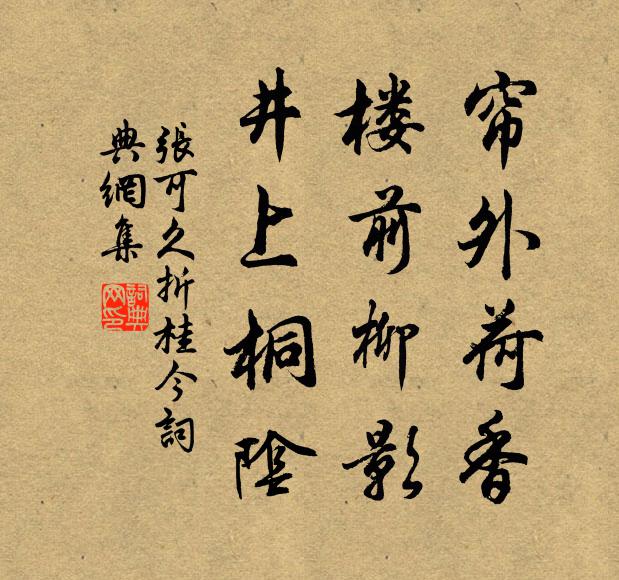 帘外荷香
楼前柳影
井上桐陰
張可久折桂令詞
典網集
詞典网印